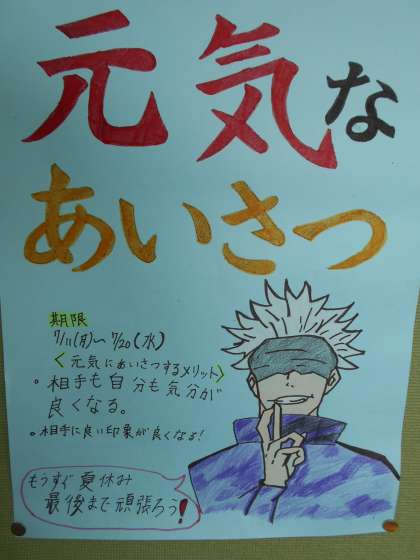 元気な
あいさつ
期限
7/11(月)〜7/20(水)
<元気にあいさつするメリット>
。相手も自分も気分が
良くなる。
。相手に良い印象が良くなる!
もうすぐ夏休み
最後まで頑張ろう!